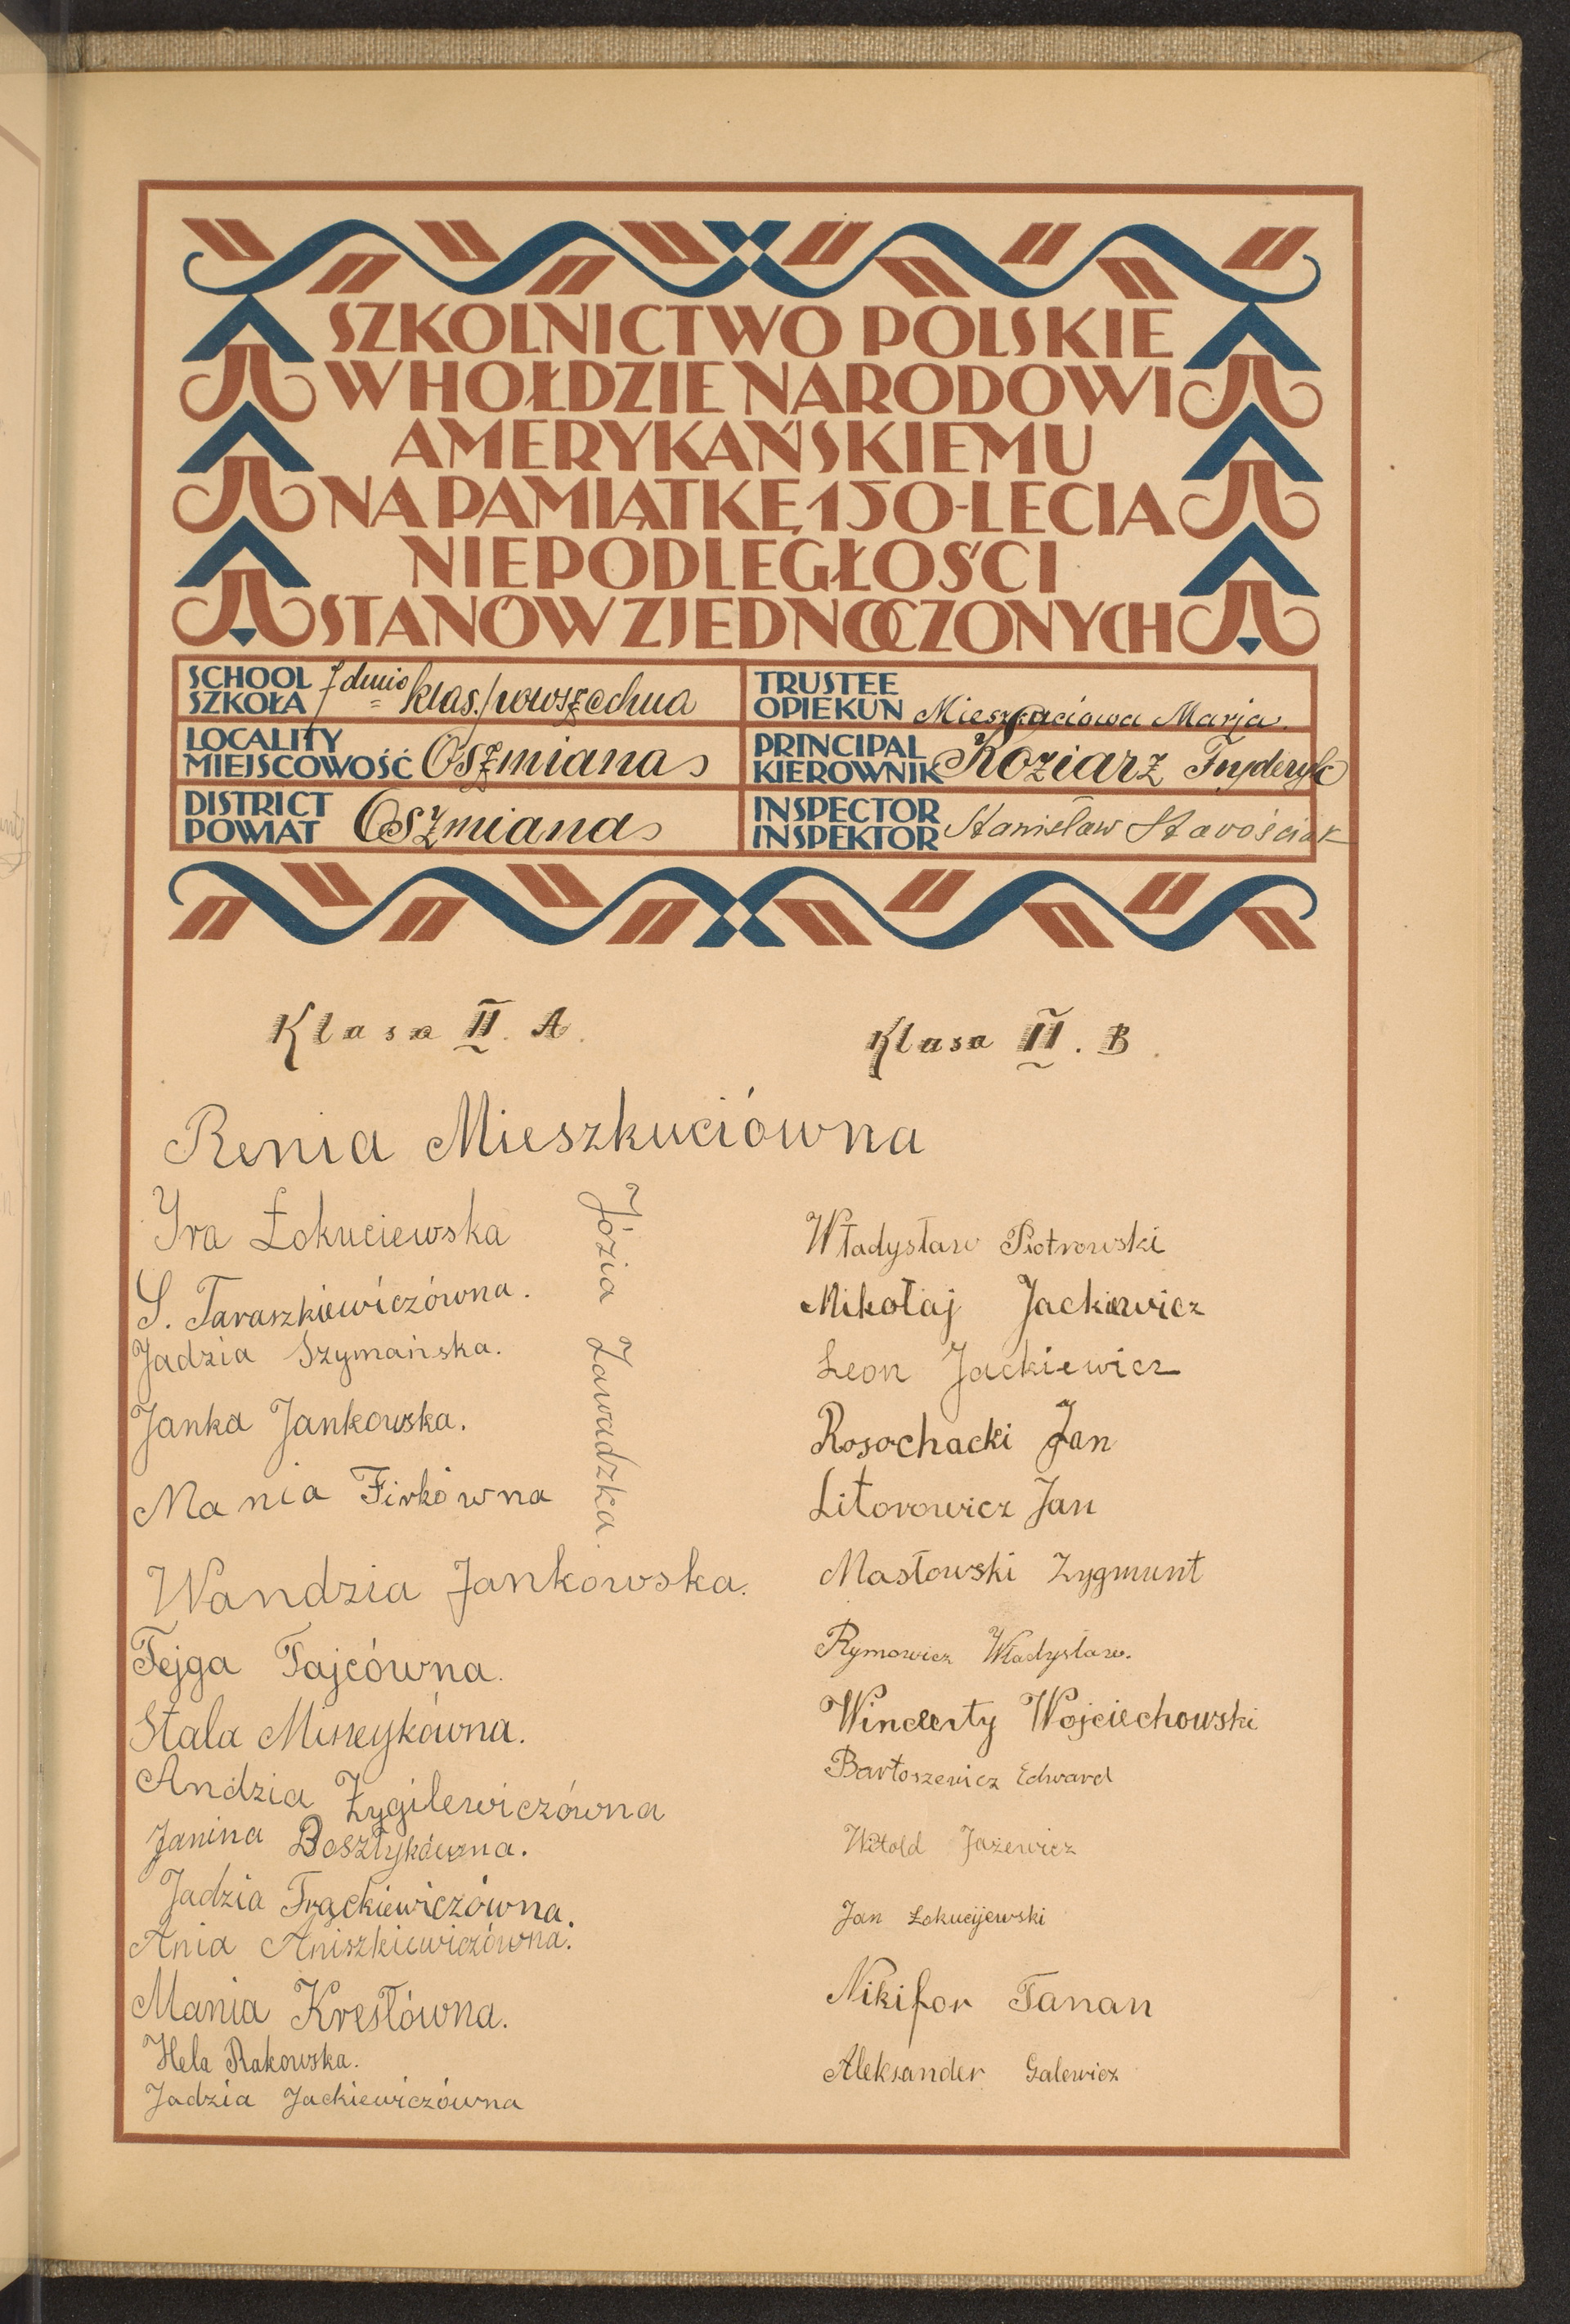 SZKOLNICTWO POLSKIE
W HOŁDZIE NARODOWI
AMERYKAŃSKIEMU
NA PAMIĄTKĘ 150-LECIA
NIEPODLEGŁOŚCI
STANÓW ZJEDNOCZONYCH
SCHOOL
SZKOŁA
7dmio klas. powszechna
TRUSTEE
OPIEKUN
Mieszkuciowa Marja.
LOCALITY
MIEJSCOWOŚĆ
Oszmiana
PRINCIPAL
KIEROWNIK
Koziarz Fryderyk
DISTRICT
POWIAT
Oszmiana
INSPECTOR
INSPEKTOR
Stanisław Starościak
Klasa II. A.
Renia Mieszkuciówna
Ira Łokuciewska
S. Taraszkiewiczówna.
Jadzia Szymańska.
Janka Jankowska.
Mania Firkówna
Józia Zawadzka.
Wandzia Jankowska.
Fejga Tajcówna.
Stala Misseykówna.
Andzia Żygilewiczówna
Janina Bosztykówna.
Jadzia Frąckiewiczówna.
Ania Aniszkiewiczówna.
Mania Kresłówna.
Hela Rakowska.
Jadzia Jackiewiczówna
Klasa II. B.
Władysław Piotrowski
Mikołaj Jackiewicz
Leon Jackiewicz
Rosochacki Jan
Litorowicz Jan
Masłowski Zygmunt
Rymowicz Władysław.
Wincenty Wojciechowski
Bartoszewicz Edward
Witold Jażewicz
Jan Łokucijewski
Nikifor Tanan
Aleksander Galewicz